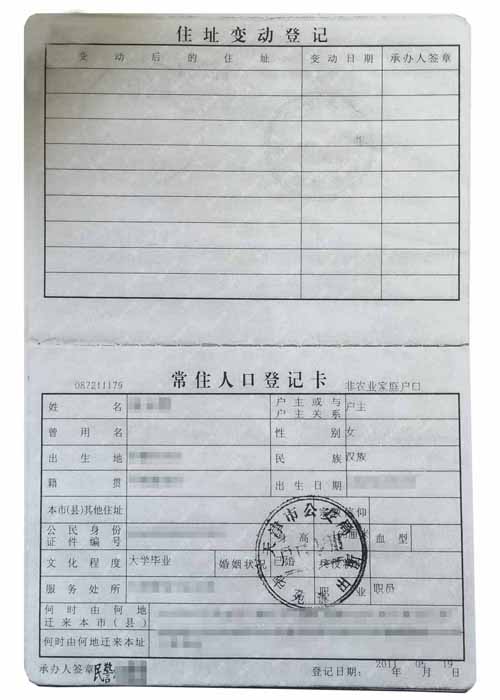 住址变动登记
变动后的住址 变动日期 承办人签章
常住人口登记卡
087211179 非农业家庭户口
姓名 户主或与户主关系 户主
曾用名 性别 女
出生地 民族 汉族
籍贯 出生日期
本市(县)其他住址 信仰
公民身份证件编号 高 血型
文化程度 大学毕业 婚姻状况 已婚
服务处所 职业 职员
何时由何地迁来本市(县)
何时由何地迁来本址
承办人签章 民警 登记日期: 2011年05月19日
天津市公安局